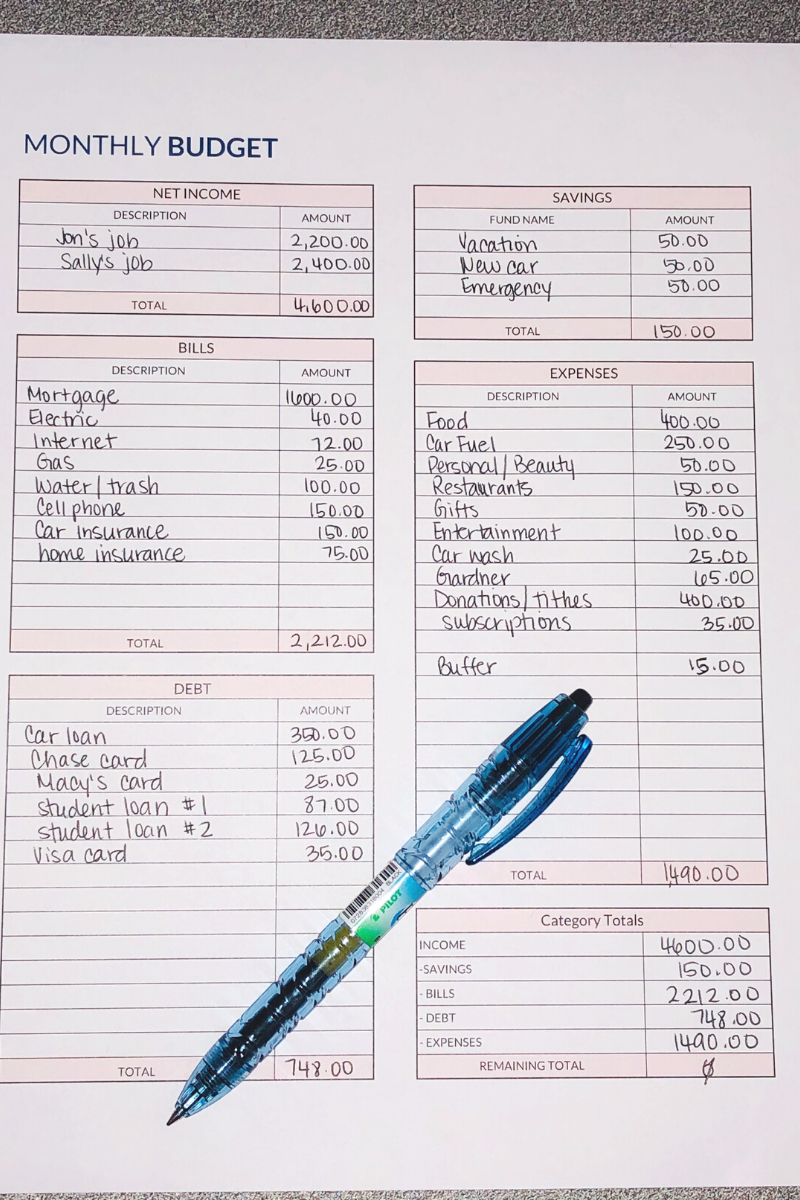 MONTHLY BUDGET
NET INCOME
DESCRIPTION AMOUNT
Jon's job 2,200.00
Sally's job 2,400.00
TOTAL 4,600.00
BILLS
DESCRIPTION AMOUNT
Mortgage 1600.00
Electric 40.00
Internet 72.00
Gas 25.00
Water/trash 100.00
Cell phone 150.00
Car insurance 150.00
home insurance 75.00
TOTAL 2,212.00
DEBT
DESCRIPTION AMOUNT
Car loan 350.00
Chase card 125.00
Macy's card 25.00
student loan #1 87.00
student loan #2 126.00
Visa card 35.00
TOTAL 748.00
SAVINGS
FUND NAME AMOUNT
Vacation 50.00
New car 50.00
Emergency 50.00
TOTAL 150.00
EXPENSES
DESCRIPTION AMOUNT
Food 400.00
Car Fuel 250.00
Personal/Beauty 50.00
Restaurants 150.00
Gifts 50.00
Entertainment 100.00
Car wash 25.00
Gardner 65.00
Donations/tithes 400.00
subscriptions 35.00
Buffer 15.00
TOTAL 1,490.00
Category Totals
INCOME 4600.00
-SAVINGS 150.00
- BILLS 2212.00
- DEBT 748.00
- EXPENSES 1490.00
REMAINING TOTAL 0
BLACK
PILOT